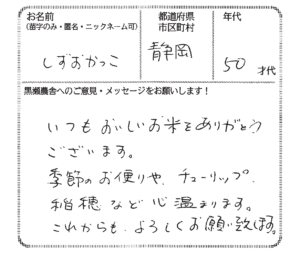 お名前
(苗字のみ・匿名・ニックネーム可)
都道府県
市区町村
年代
しずおかっこ
静岡
50才代
黒瀬農舎へのご意見・メッセージをお願いします！
いつもおいしいお米をありがとう
ございます。
季節のお便りや、チューリップ、
稲穂など心温まります。
これからも、よろしくお願い致します。